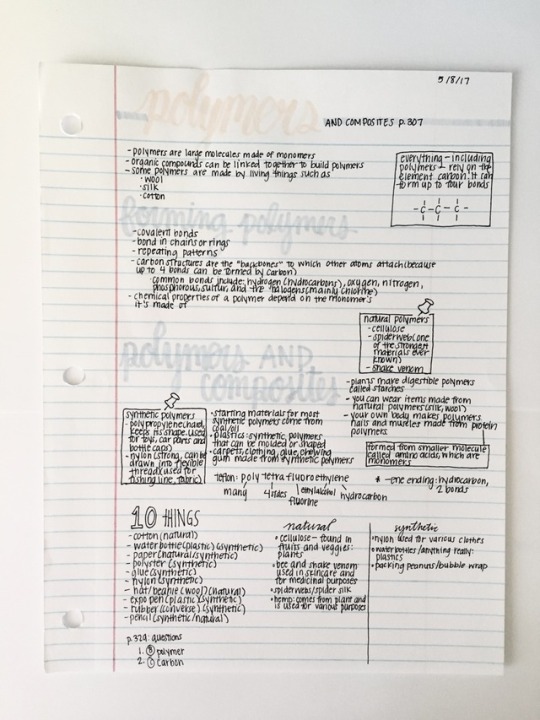 5/8/17
polymers
AND COMPOSITES p.307
-polymers are large molecules made of monomers
-organic compounds can be linked together to build polymers
-some polymers are made by living things such as
·wool
·silk
·cotton
everything - including
polymers - rely on the
element carbon. It can
form up to four bonds
-C-C-C-
forming polymers
-covalent bonds
-bond in chains or rings
-repeating patterns
-carbon structures are the "backbones" to which other atoms attach (because
up to 4 bonds can be formed by carbon)
·common bonds include: hydrogen (hydrocarbons), oxygen, nitrogen,
phosphorous, sulfur, and the halogens (mainly chlorine)
-chemical properties of a polymer depend on the monomer's
it's made of
natural polymers
-cellulose
-spiderweb (one
of the strongest
materials ever
known)
-snake venom
polymers AND
composites
-plants make digestible polymers
called starches
-you can wear items made from
natural polymers (silk, wool)
-your own body makes polymers.
nails and muscles made from protein
polymers
formed from smaller molecule
called amino acids, which are
monomers
synthetic polymers
-polypropylene (hard,
keeps its shape, used
for toys, car parts and
bottle caps)
-nylon (strong, can be
drawn into flexible
thread, used for
fishing line, fabric)
-starting materials for most
synthetic polymers come from
coal/oil
-plastics: synthetic polymers
that can be molded or shaped
-carpets, clothing, glue, chewing
gum made from synthetic polymers
teflon: poly tetra fluoro ethylene
many
4 sides
fluorine
ethyl alcohol
hydrocarbon
* -ene ending: hydrocarbon,
2 bonds
10 THINGS
-cotton (natural)
-water bottle (plastic) (synthetic)
-paper (natural/synthetic)
-polyster (synthetic)
-glue (synthetic)
-nylon (synthetic)
-hat/beanie (wool) (natural)
-expo pen (plastic) (synthetic)
-rubber (converse) (synthetic)
-pencil (synthetic/natural)
natural
·cellulose - found in
fruits and veggies:
plants
·bee and snake venom
used in skincare and
for medicinal purposes
·spiderwebs/spider silk
·hemp: comes from plant and
is used for various purposes
synthetic
·nylon used for various clothes
·water bottles/anything really:
plastics
·packing peanuts/bubble wrap
p.329: questions
1. B polymer
2. C carbon